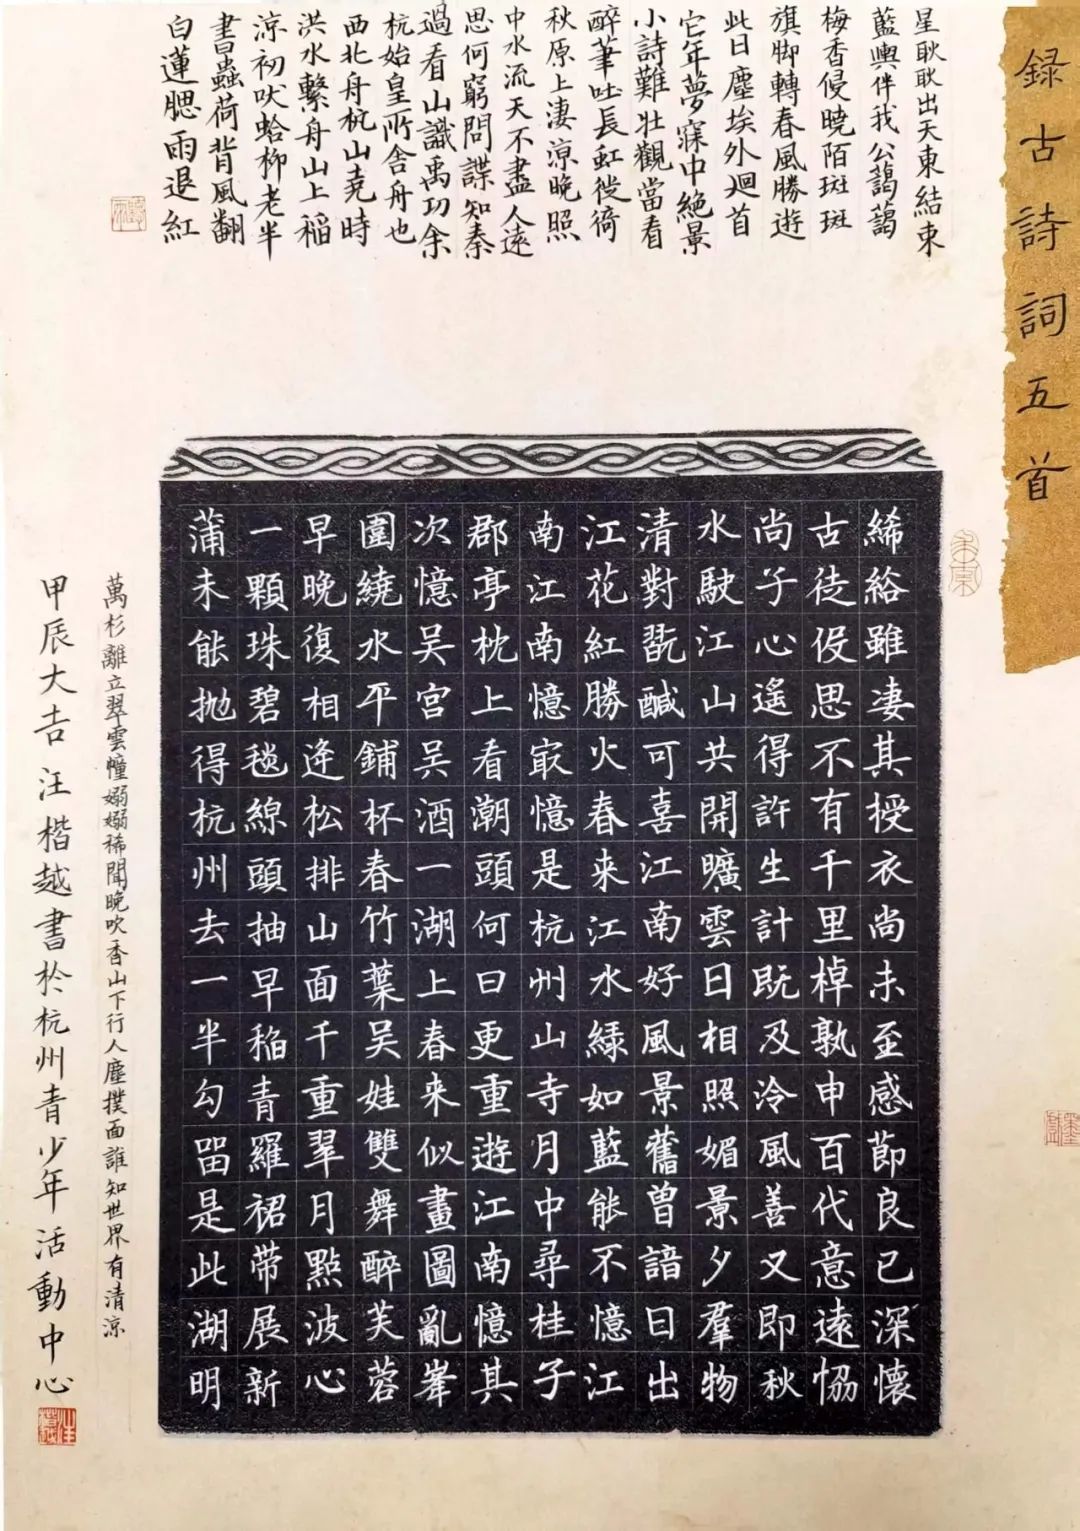 録古詩詞五首
星耿耿出天東結束
藍輿伴我公藹藹
梅香侵曉陌斑斑
旗脚轉春風勝遊
此日塵埃外廻首
它年夢寐中絶景
小詩難壯觀當看
醉筆吐長虹徙倚
秋原上淒涼晚照
中水流天不盡人遠
思何窮問諜知秦
過看山識禹功余
杭始皇所舍舟也
西北舟杭山堯時
洪水繫舟山上稻
涼初吠蛤柳老半
書蟲荷背風翻
白蓮腮雨退紅
絺綌雖凄其授衣尚未至感節良已深懷
古徒伇思不有千里棹孰申百代意遠恊
尚子心遙得許生計既及泠風善又即秋
水駛江山共開曠雲日相照媚景夕羣物
清對翫醎可喜江南好風景舊曾諳日出
江花紅勝火春来江水緑如藍能不憶江
南江南憶㝡憶是杭州山寺月中尋桂子
郡亭枕上看潮頭何日更重遊江南憶其
次憶吴宫吴酒一湖上春来似畫圖亂峯
圍繞水平鋪杯春竹葉吴娃雙舞醉芙蓉
早晚復相逄松排山面千重翠月點波心
一顆珠碧毯線頭抽早稻青羅裙带展新
蒲未能抛得杭州去一半勾留是此湖明
萬杉離立翠雲幢嫋嫋稀聞晚吹香山下行人塵撲面誰知世界有清涼
甲辰大吉汪楷越書於杭州青少年活動中心